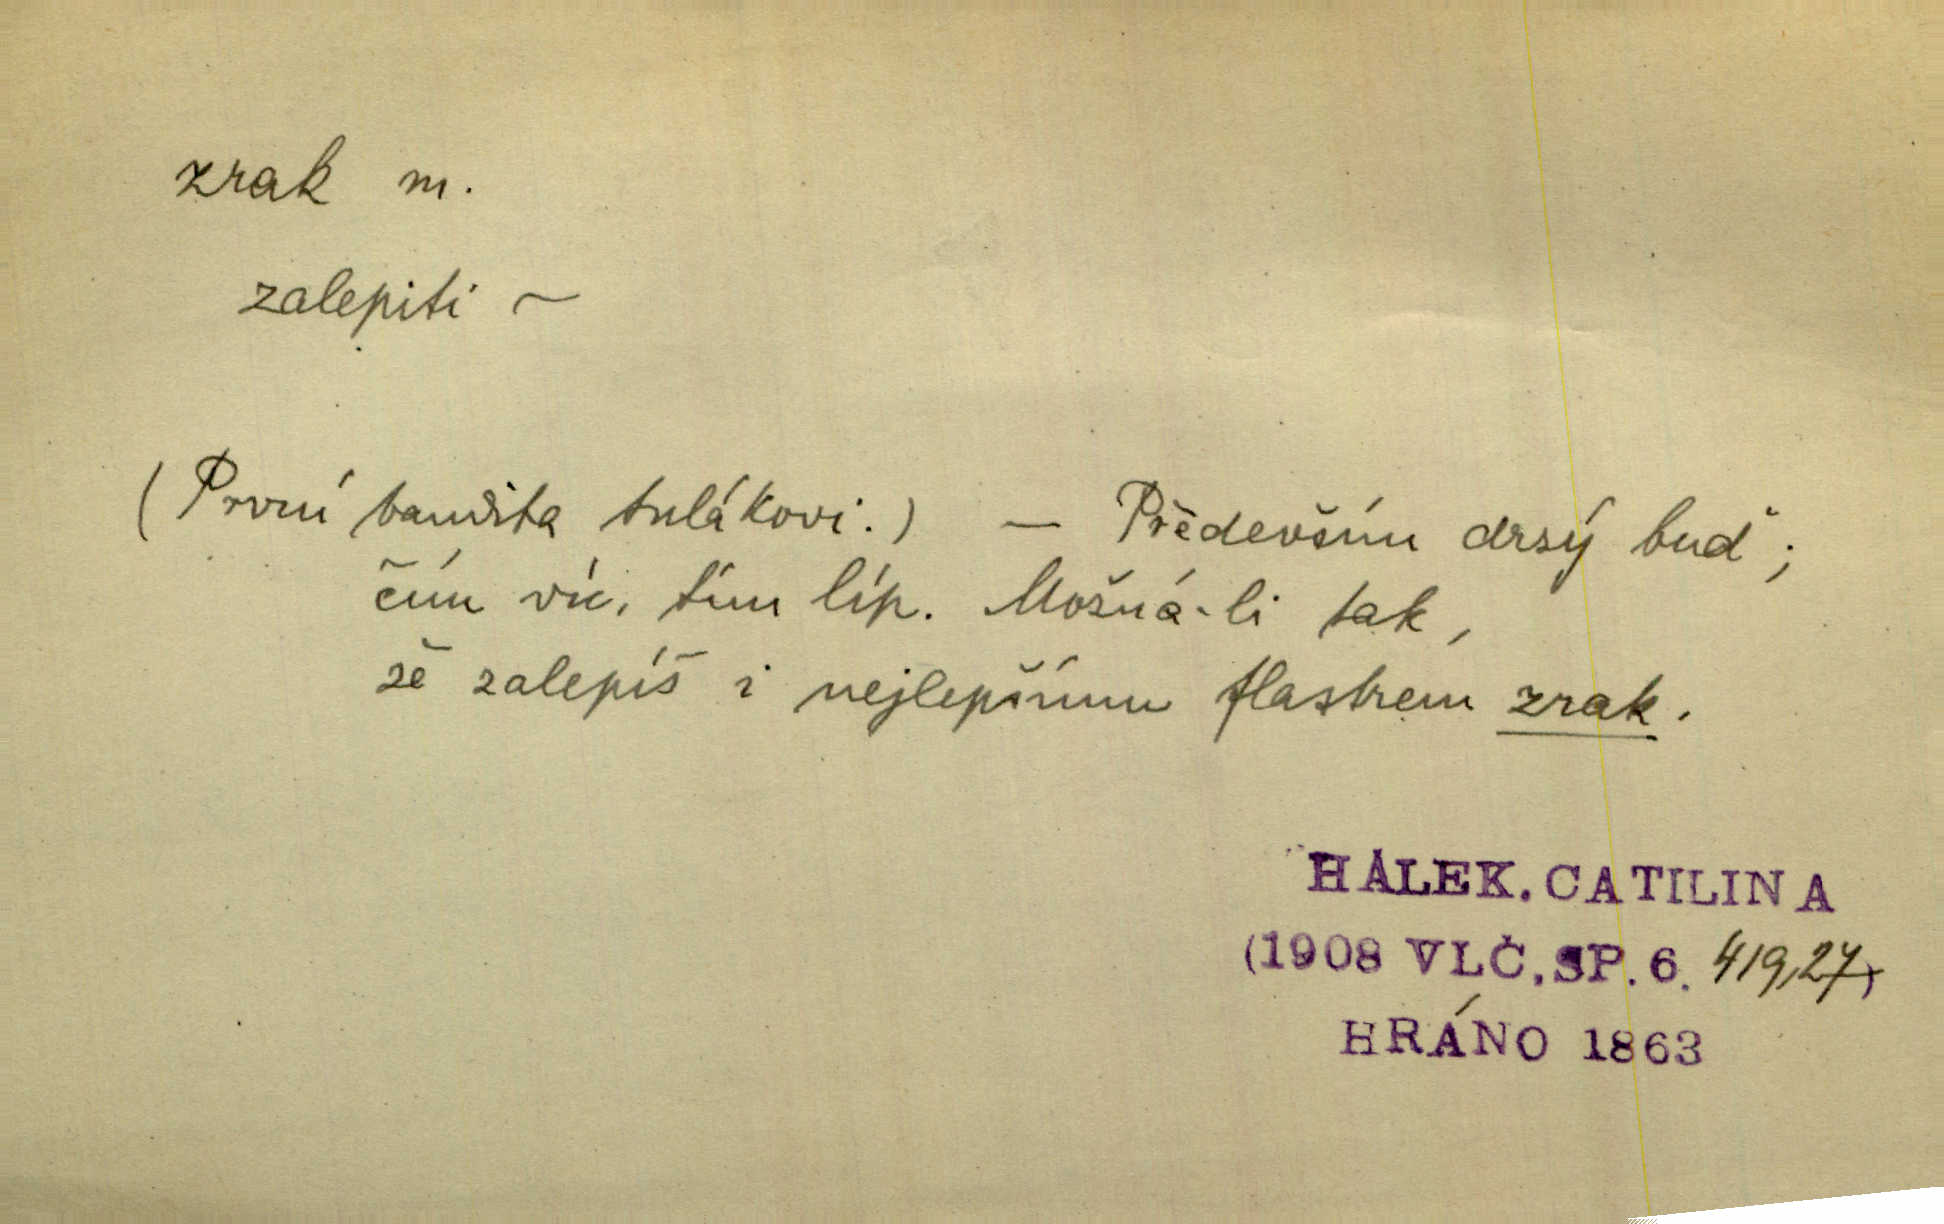 zrak m.
zalepiti ~
(První bandita tulákovi.) — Především drzý buď;
čím víc, tím líp. Možná-li tak,
že zalepíš i nejlepšímu flastrem zrak.
HÁLEK. CATILINA
(1908 VLČ. SP. 6. 419,27)
HRÁNO 1863